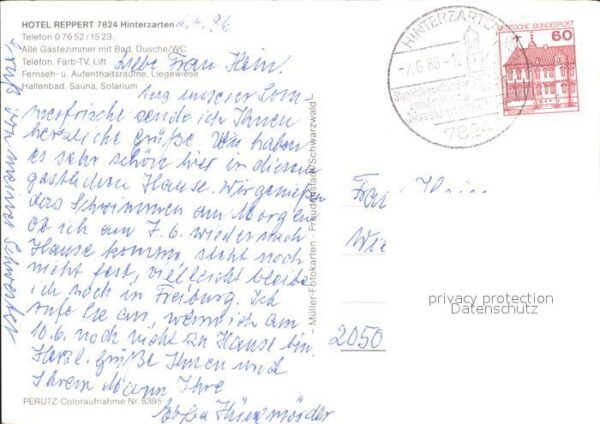 HOTEL REPPERT 7824 Hinterzarten
Telefon 0 76 52 / 15 23
Alle Gästezimmer mit Bad, Dusche/WC
Telefon, Farb-TV, Lift
Fernseh- u. Aufenthaltsräume, Liegewiese
Hallenbad, Sauna, Solarium
Liebe Frau Hein.
aus unserer Som-
merfrische sende ich Ihnen
herzliche Grüße. Wir haben
es sehr schön hier in diesem
gastlichen Hause. Wir genießen
das Schwimmen am Morgen
Ob ich am 7.6. wieder nach
Hause komme, steht noch
nicht fest, vielleicht bleibe
ich noch in Freiburg. Ich
rufe Sie an, wenn ich am
10.6. noch nicht zu Hause bin.
Herzl. Grüße Ihnen und
Ihrem Mann Ihre
PERUTZ-Coloraufnahme Nr. 5395
– Müller-Fotokarten · Freudenstadt/Schwarzwald
HINTERZARTEN
-2.6.86-1
7824
DEUTSCHE BUNDESPOST
60
2050
privacy protection
Datenschutz